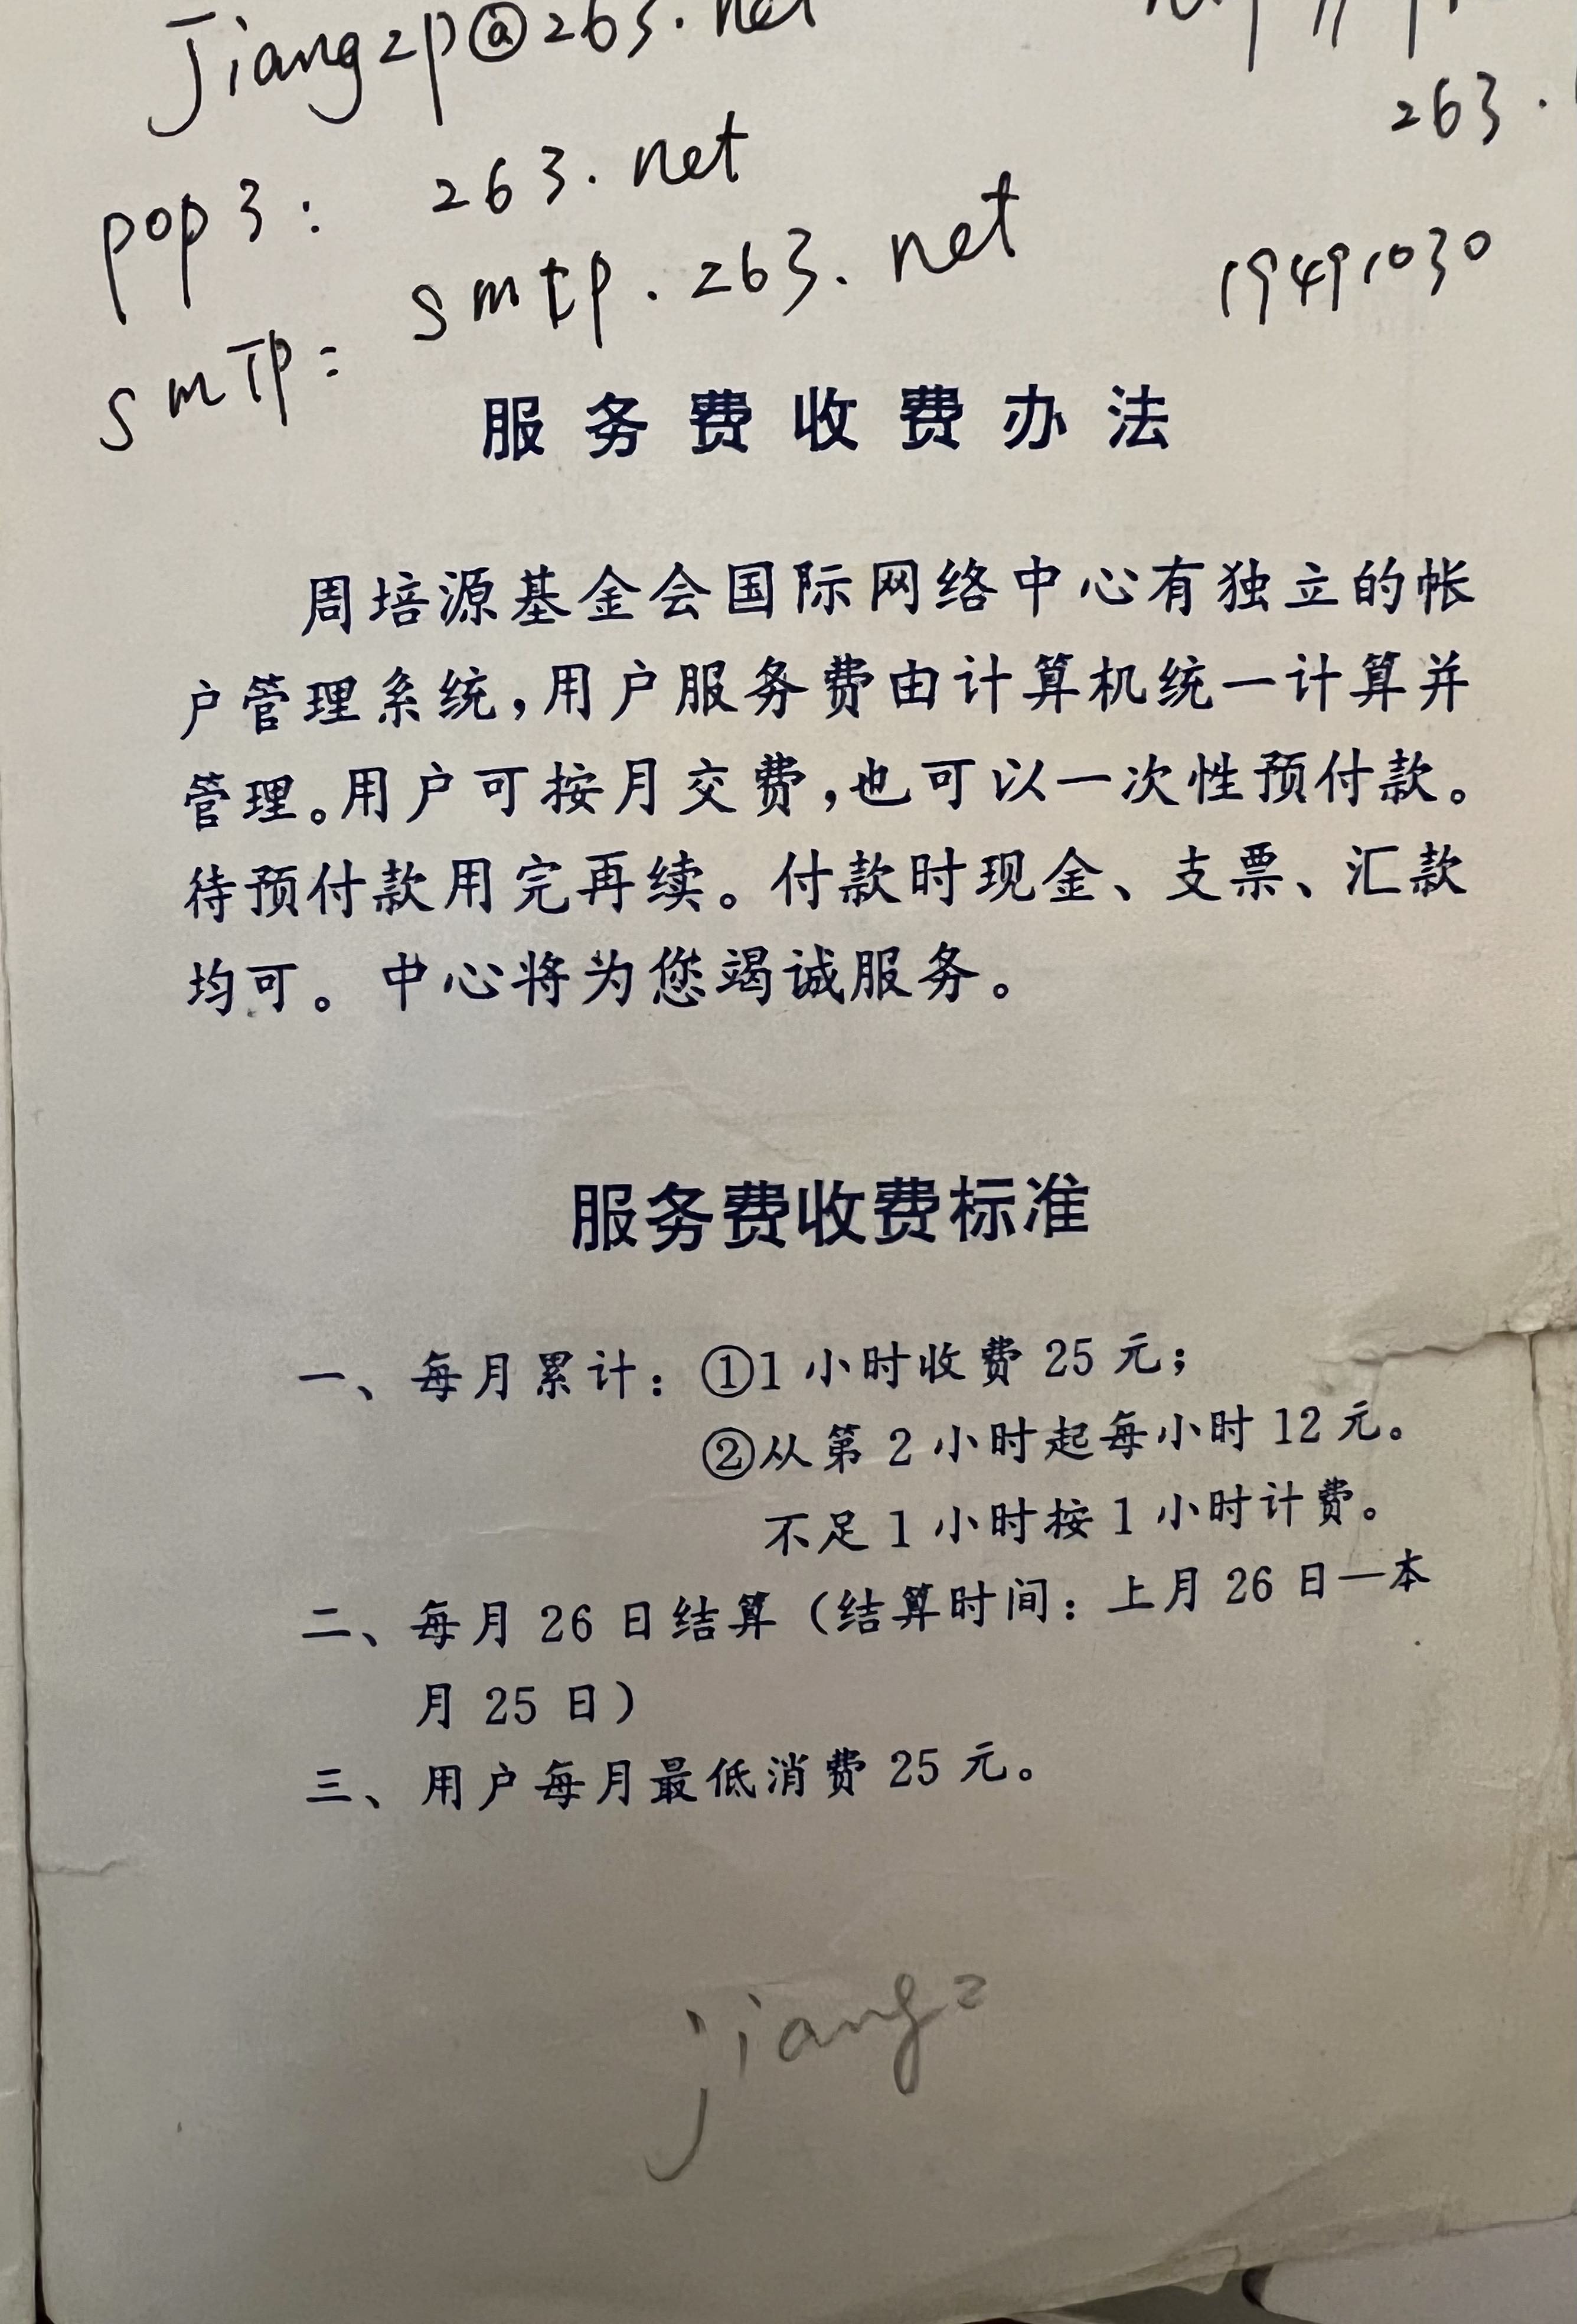 Jiangzp@263.net
263.
pop3: 263.net
smTP: smtp.263.net
19491030
服务费收费办法
周培源基金会国际网络中心有独立的帐
户管理系统，用户服务费由计算机统一计算并
管理。用户可按月交费，也可以一次性预付款。
待预付款用完再续。付款时现金、支票、汇款
均可。中心将为您竭诚服务。
服务费收费标准
一、每月累计：①1小时收费25元；
②从第2小时起每小时12元。
不足1小时按1小时计费。
二、每月26日结算（结算时间：上月26日—本
月25日）
三、用户每月最低消费25元。
jiangz